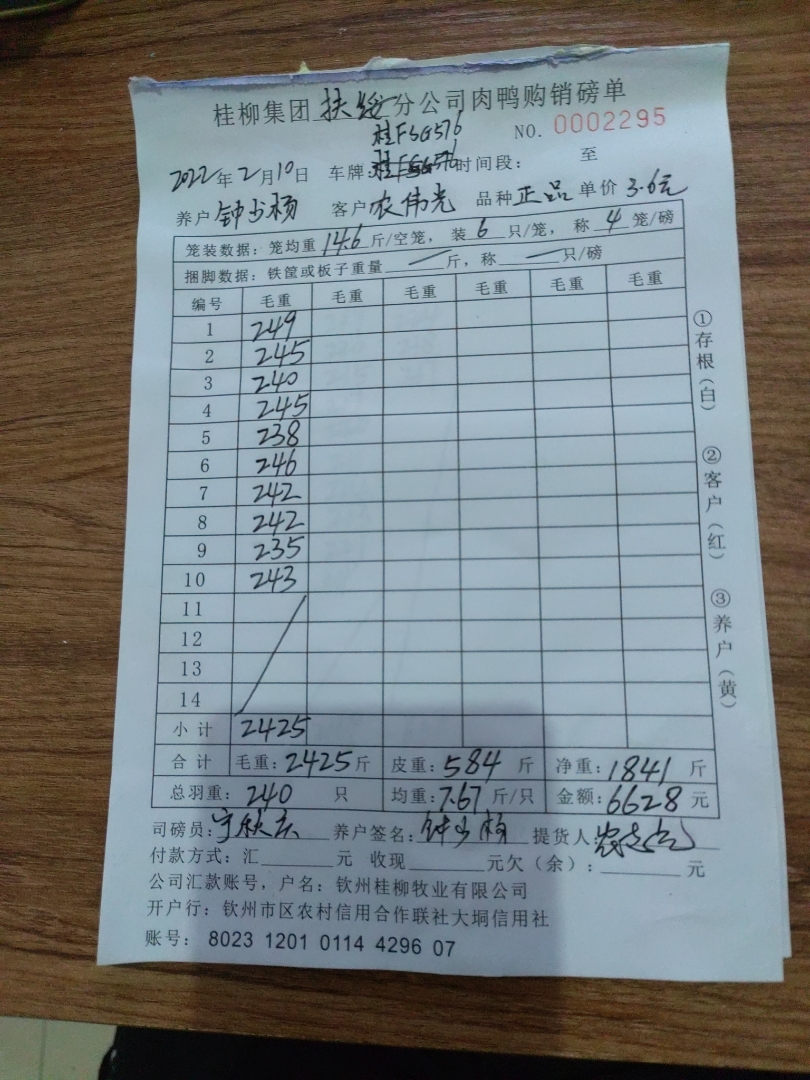 桂柳集团扶绥分公司肉鸭购销磅单
桂FSG576
NO. 0002295
2022年2月10日 车牌: 时间段: 至
养户 钟少杨 客户 农伟光 品种 正品 单价 3.6元
笼装数据: 笼均重 14.6 斤/空笼, 装 6 只/笼, 称 4 笼/磅
捆脚数据: 铁筐或板子重量 — 斤, 称 — 只/磅
编号 毛重 毛重 毛重 毛重 毛重 毛重
1 249
2 245
3 240
4 245
5 238
6 246
7 242
8 242
9 235
10 243
11
12
13
14
小计 2425
合计 毛重: 2425 斤 皮重: 584 斤 净重: 1841 斤
总羽重: 240 只 均重: 7.67 斤/只 金额: 6628 元
司磅员: 养户签名: 钟少杨 提货人
付款方式: 汇 元 收现 元欠(余): 元
公司汇款账号, 户名: 钦州桂柳牧业有限公司
开户行: 钦州市区农村信用合作联社大垌信用社
账号: 8023 1201 0114 4296 07
①存根(白)
②客户(红)
③养户(黄)